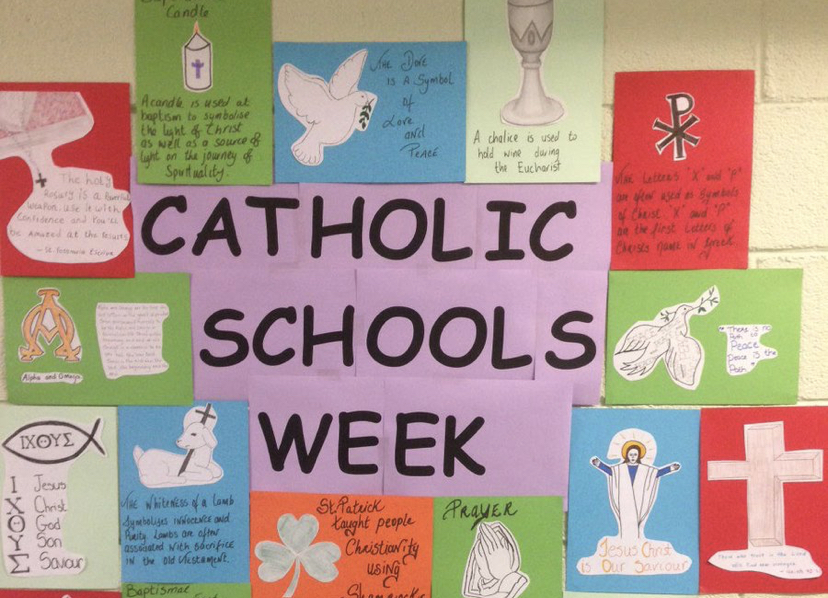 Candle
A candle is used at
baptism to symbolise
the light of Christ
as well as a source of
light on the journey of
Spirituality.
The Dove
is a Symbol
of
Love
and
Peace
A chalice is used to
hold wine during
the Eucharist
The Letters "X" and "P"
are often used as Symbols
of Christ "X" and "P"
are the first Letters of
Christs name in Greek.
The holy
Rosary is a Powerful
weapon. use it with
Confidence and You'll
be Amazed at the Results
CATHOLIC
SCHOOLS
WEEK
Alpha and Omega
"There is no
Path to
Peace
Peace is the
Path"
ΙΧΘΥΣ
Ι Jesus
Χ Christ
Θ God
Υ Son
Σ Saviour
The Whiteness of a Lamb
Symbolises innocence and
Purity. Lambs are often
associated with Sacrifice
in the Old Testament.
Baptismal
St. Patrick
taught people
Christianity
using
Shamrocks
PRAYER
Jesus Christ
is Our Saviour